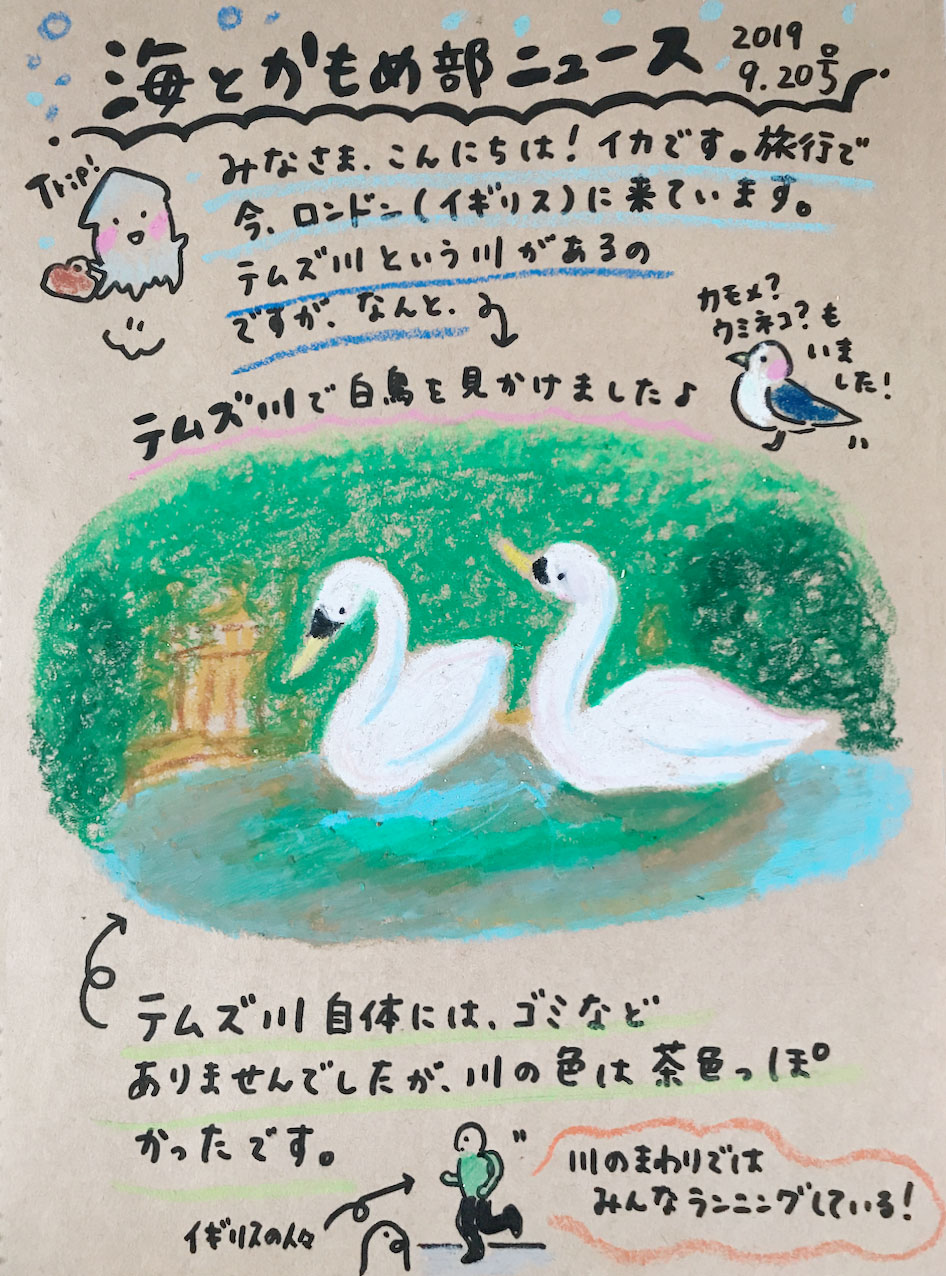 海とかもめ部ニュース
2019
9.20号
Trip!
みなさま、こんにちは！イカです。旅行で
今、ロンドン(イギリス)に来ています。
テムズ川という川があるの
ですが、なんと、
カモメ？
ウミネコ？も
いま
した！
テムズ川で白鳥を見かけました♪
テムズ川自体には、ゴミなど
ありませんでしたが、川の色は茶色っぽ
かったです。
イギリスの人々
川のまわりでは
みんなランニングしている！